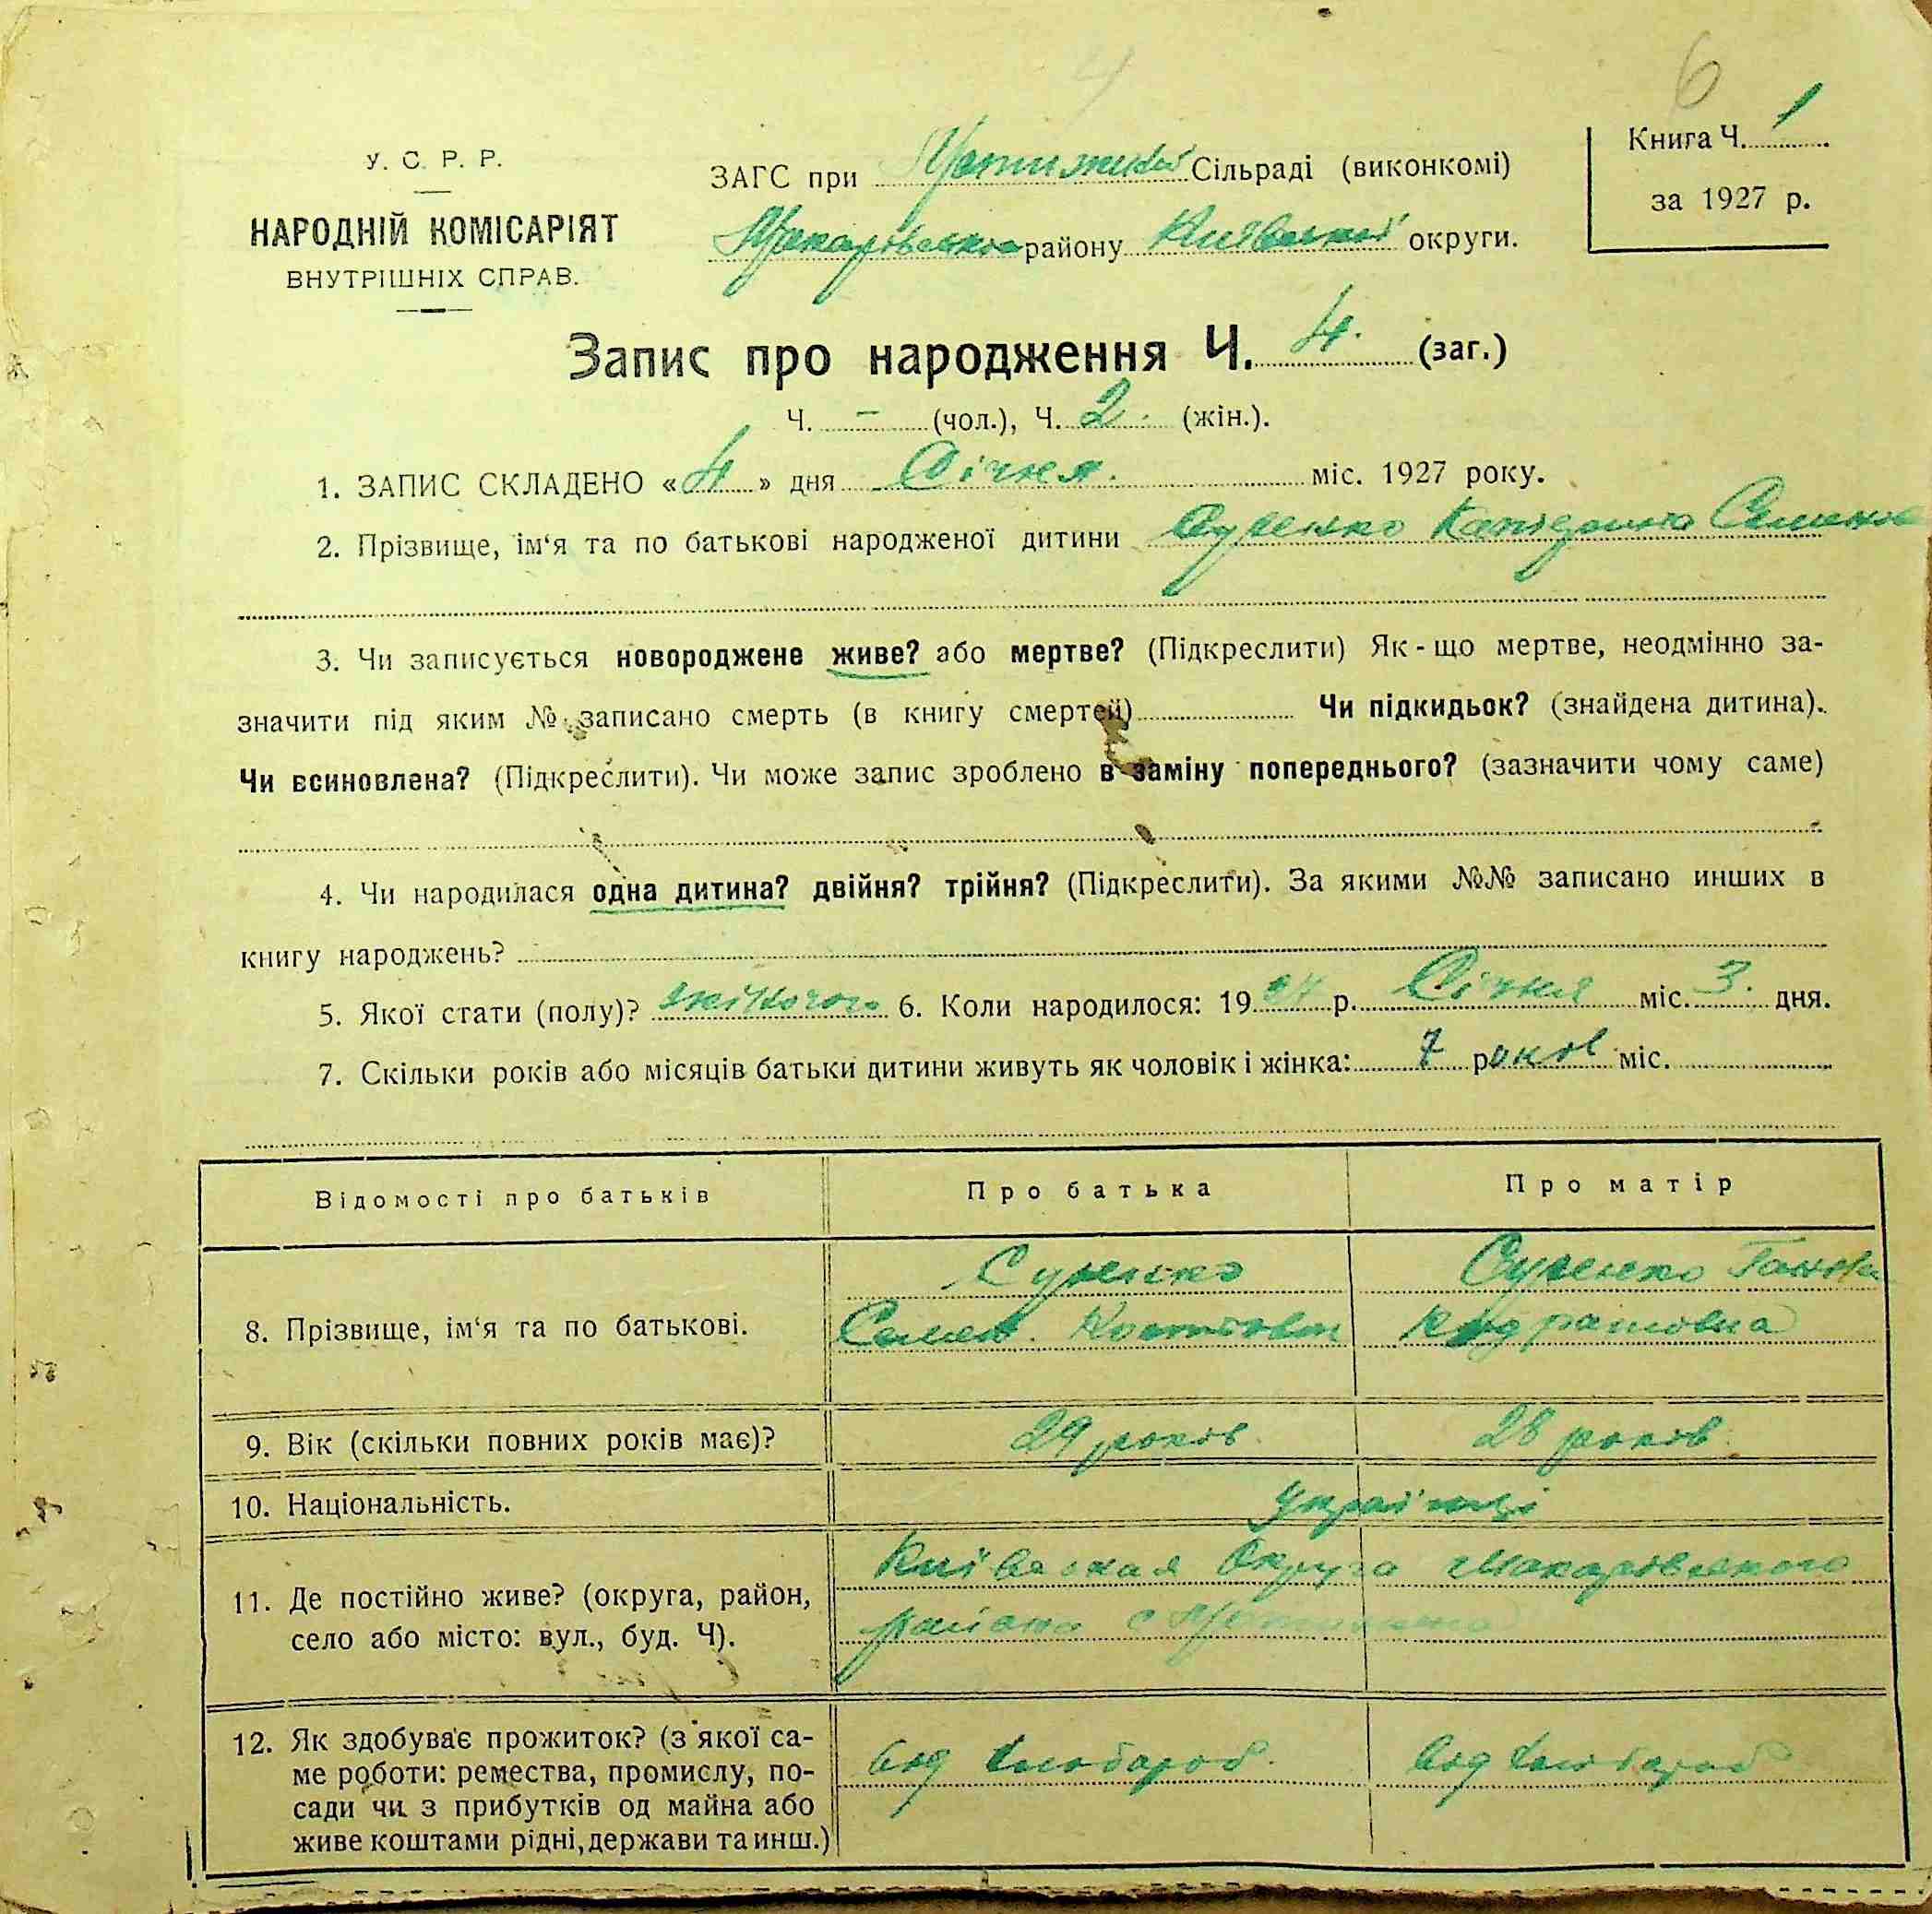 4
6
У. С. Р. Р.
НАРОДНІЙ КОМІСАРІЯТ
ВНУТРІШНІХ СПРАВ.
ЗАГС при Сільраді (виконкомі)
Макарівського району Київської округи.
Книга Ч. 1
за 1927 р.
Запис про народження Ч. 4. (заг.)
Ч. – (чол.), Ч. 2. (жін.).
1. ЗАПИС СКЛАДЕНО «4» дня Січня. міс. 1927 року.
2. Прізвище, ім‘я та по батькові народженої дитини
3. Чи записується новороджене живе? або мертве? (Підкреслити) Як-що мертве, неодмінно за-
значити під яким № записано смерть (в книгу смертей) Чи підкидьок? (знайдена дитина).
Чи всиновлена? (Підкреслити). Чи може запис зроблено в заміну попереднього? (зазначити чому саме)
4. Чи народилася одна дитина? двійня? трійня? (Підкреслити). За якими №№ записано инших в
книгу народжень?
5. Якої стати (полу)? жіночого 6. Коли народилося: 1927 р. Січня міс. 3. дня.
7. Скільки років або місяців батьки дитини живуть як чоловік і жінка: 7 років міс.
Відомості про батьків
Про батька
Про матір
8. Прізвище, ім‘я та по батькові.
Семен.
9. Вік (скільки повних років має)?
29 років
28 років
10. Національність.
українці
11. Де постійно живе? (округа, район,
село або місто: вул., буд. Ч).
Київская Округа Макарівського
района с
12. Як здобуває прожиток? (з якої са-
ме роботи: ремества, промислу, по-
сади чи з прибутків од майна або
живе коштами рідні, держави та инш.)
од хлібороб.
од хлібороб